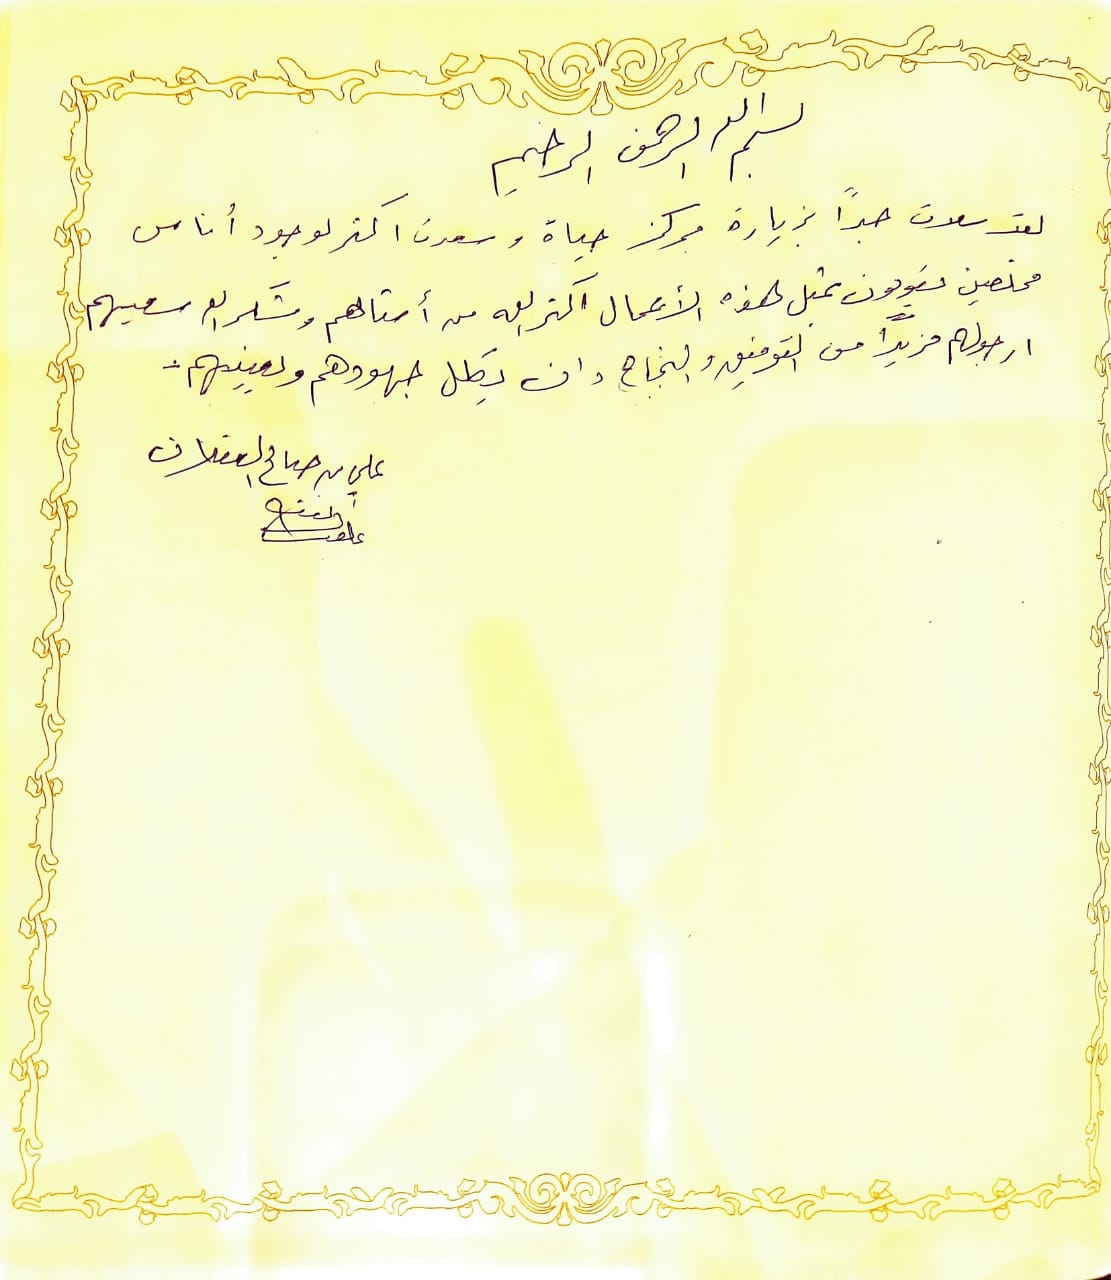 بسم الله الرحمن الرحيم
لقد سعدت جداً بزيارة مركز حياة و سعدت اكثر لوجود أناس
مخلصين يقومون بمثل هذه الأعمال اكثر الله من أمثالهم وشكر الله سعيهم
ارجو لهم مزيداً من التوفيق والنجاح وان يكلل جهودهم
علي بن صالح